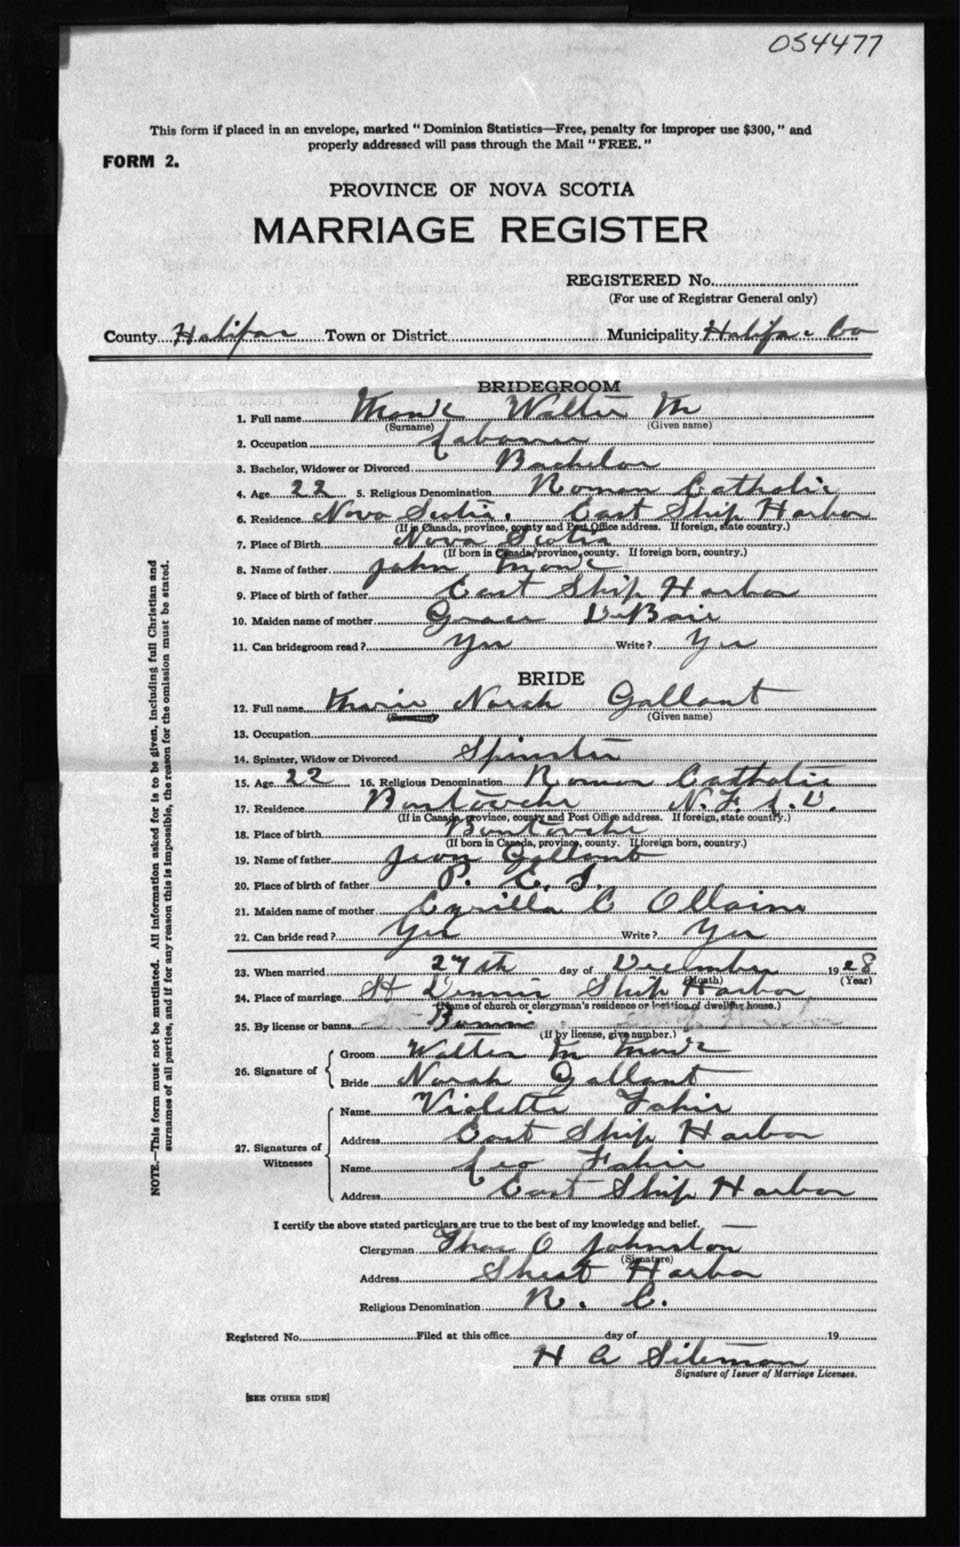 054477
This form if placed in an envelope, marked "Dominion Statistics—Free, penalty for improper use $300," and
properly addressed will pass through the Mail "FREE."
FORM 2.
PROVINCE OF NOVA SCOTIA
MARRIAGE REGISTER
REGISTERED No.
(For use of Registrar General only)
County Halifax Town or District Municipality Halifax Co
BRIDEGROOM
1. Full name Monk Walter M
(Surname) (Given name)
2. Occupation Labourer
3. Bachelor, Widower or Divorced Bachelor
4. Age 22 5. Religious Denomination Roman Catholic
6. Residence Nova Scotia. East Ship Harbor
(If in Canada, province, county and Post Office address. If foreign, state country.)
7. Place of Birth Nova Scotia
(If born in Canada, province, county. If foreign born, country.)
8. Name of father John Monk
9. Place of birth of father East Ship Harbor
10. Maiden name of mother Grace DeBaie
11. Can bridegroom read? Yes Write? Yes
BRIDE
12. Full name Marie Norah Gallant
(Surname) (Given name)
13. Occupation
14. Spinster, Widow or Divorced Spinster
15. Age 22 16. Religious Denomination Roman Catholic
17. Residence N. F. L. D.
(If in Canada, province, county and Post Office address. If foreign, state country.)
18. Place of birth
(If born in Canada, province, county. If foreign born, country.)
19. Name of father Gallant
20. Place of birth of father P. E. I.
21. Maiden name of mother C
22. Can bride read? Yes Write? Yes
23. When married 27th day of December 1928
(Month) (Year)
24. Place of marriage St Dennis Ship Harbor
(Name of church or clergyman's residence or location of dwelling house.)
25. By license or banns
(If by license, give number.)
26. Signature of
Groom Walter M Monk
Bride Norah Gallant
27. Signatures of Witnesses
Name Violette Fahie
Address East Ship Harbor
Name Leo Fahie
Address East Ship Harbor
I certify the above stated particulars are true to the best of my knowledge and belief.
Clergyman Thos O Johnston
(Signature)
Address Sheet Harbor
Religious Denomination R. C.
Registered No. Filed at this office day of 19
H A
Signature of Issuer of Marriage Licenses.
[SEE OTHER SIDE]
NOTE.—This form must not be mutilated. All information asked for is to be given, including full Christian and
surnames of all parties, and if for any reason this is impossible, the reason for the omission must be stated.